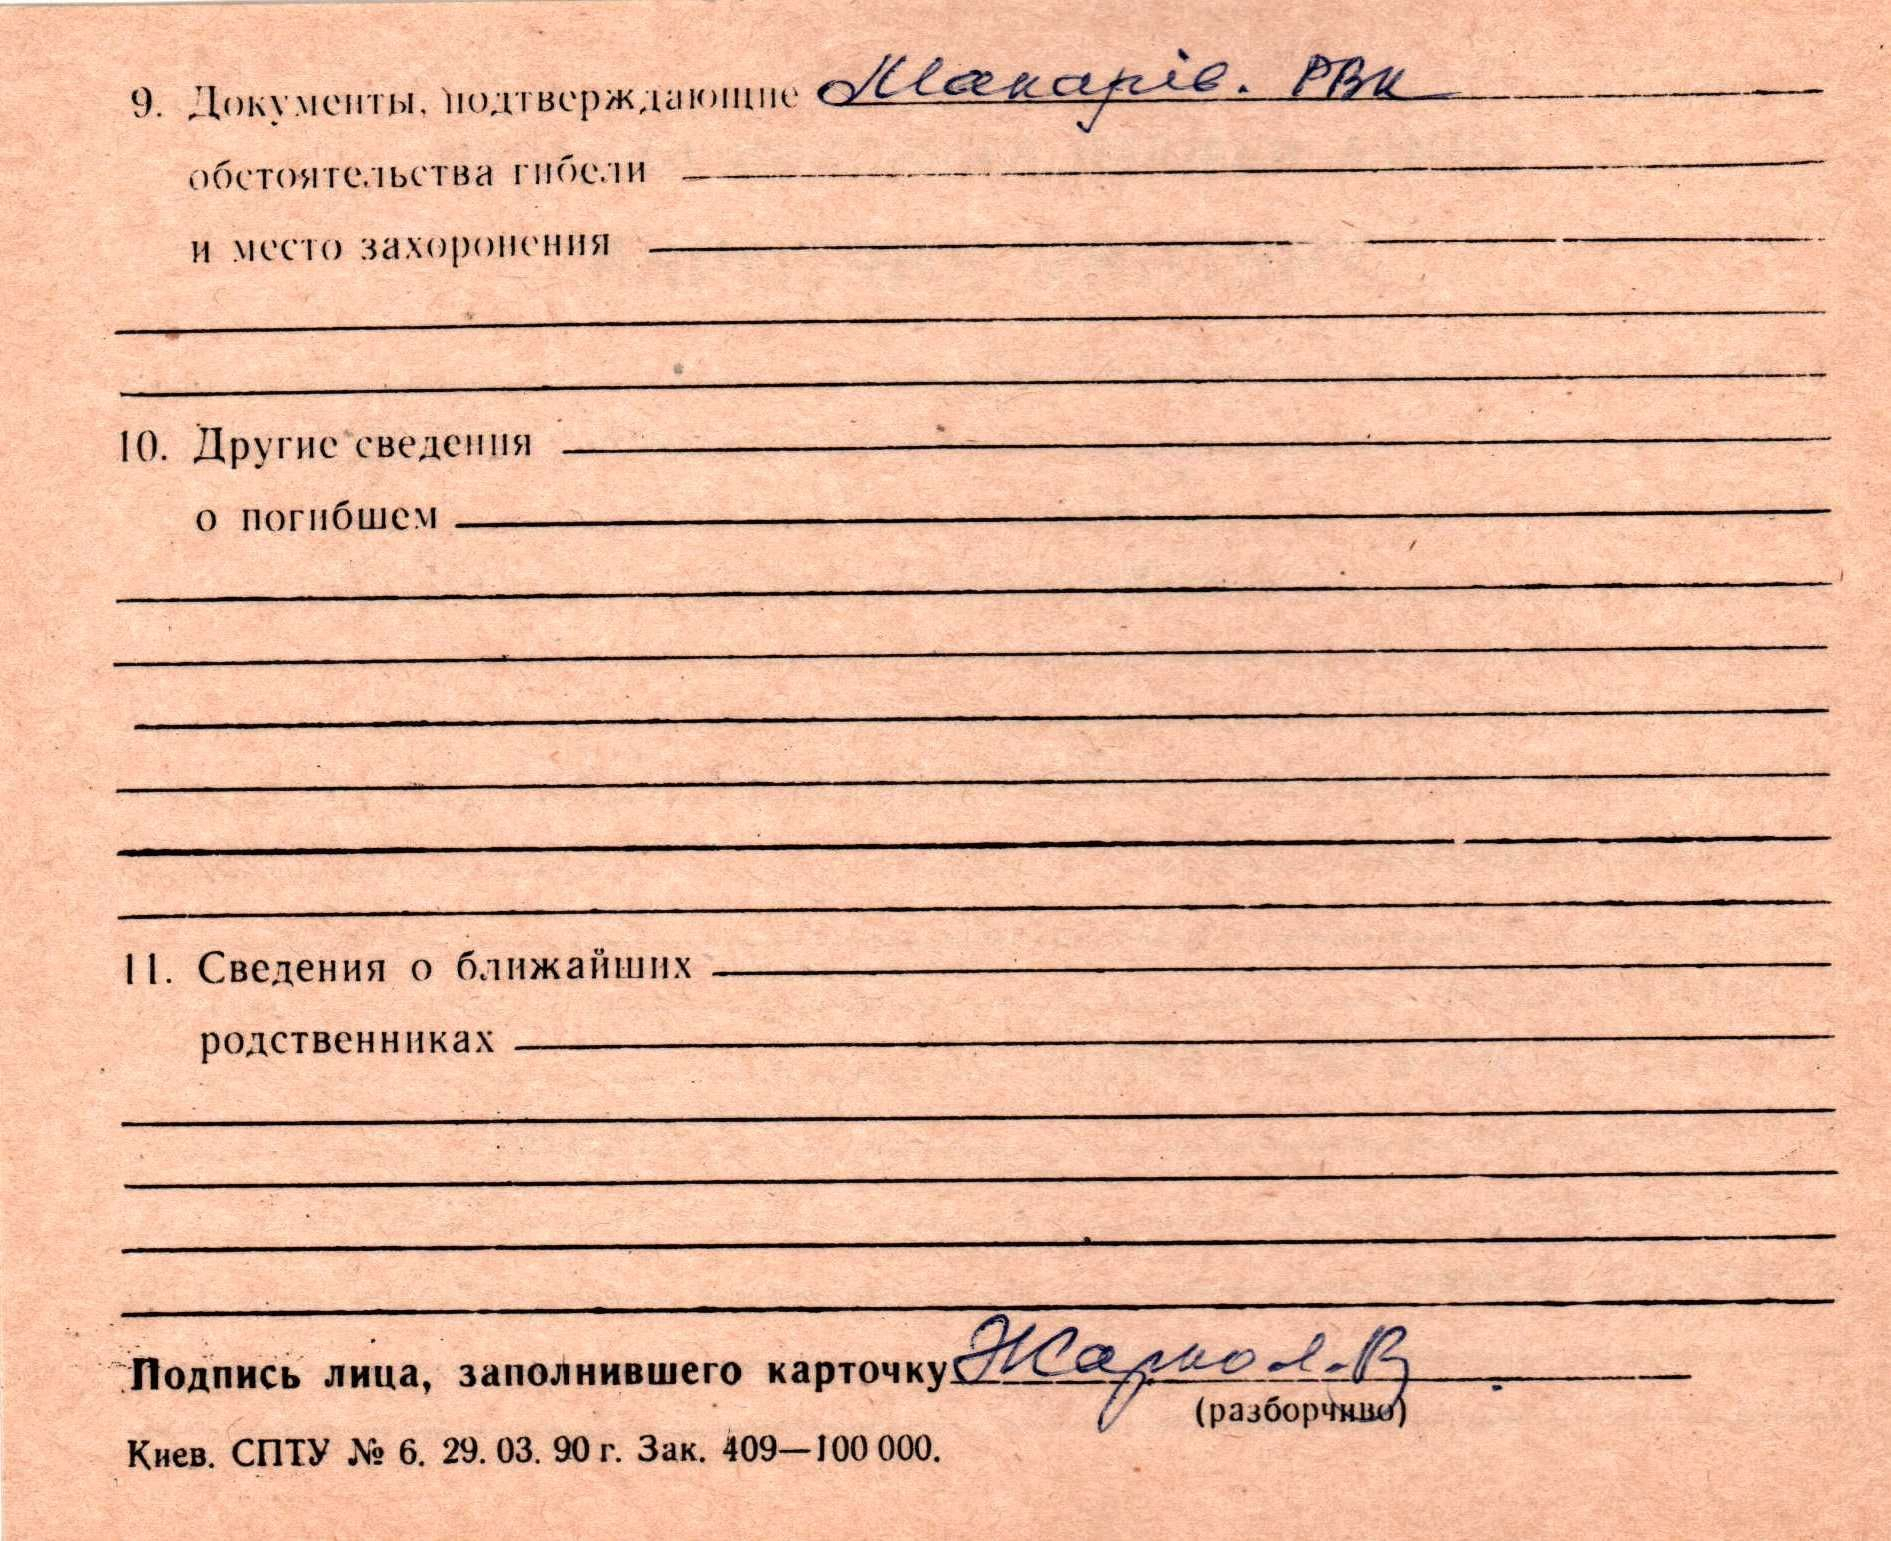 9. Документы, подтверждающие Макарів. РВК
обстоятельства гибели
и место захоронения
10. Другие сведения
о погибшем
11. Сведения о ближайших
родственниках
Подпись лица, заполнившего карточку Жарко Л.В
(разборчиво)
Киев. СПТУ № 6. 29. 03. 90 г. Зак. 409—100 000.